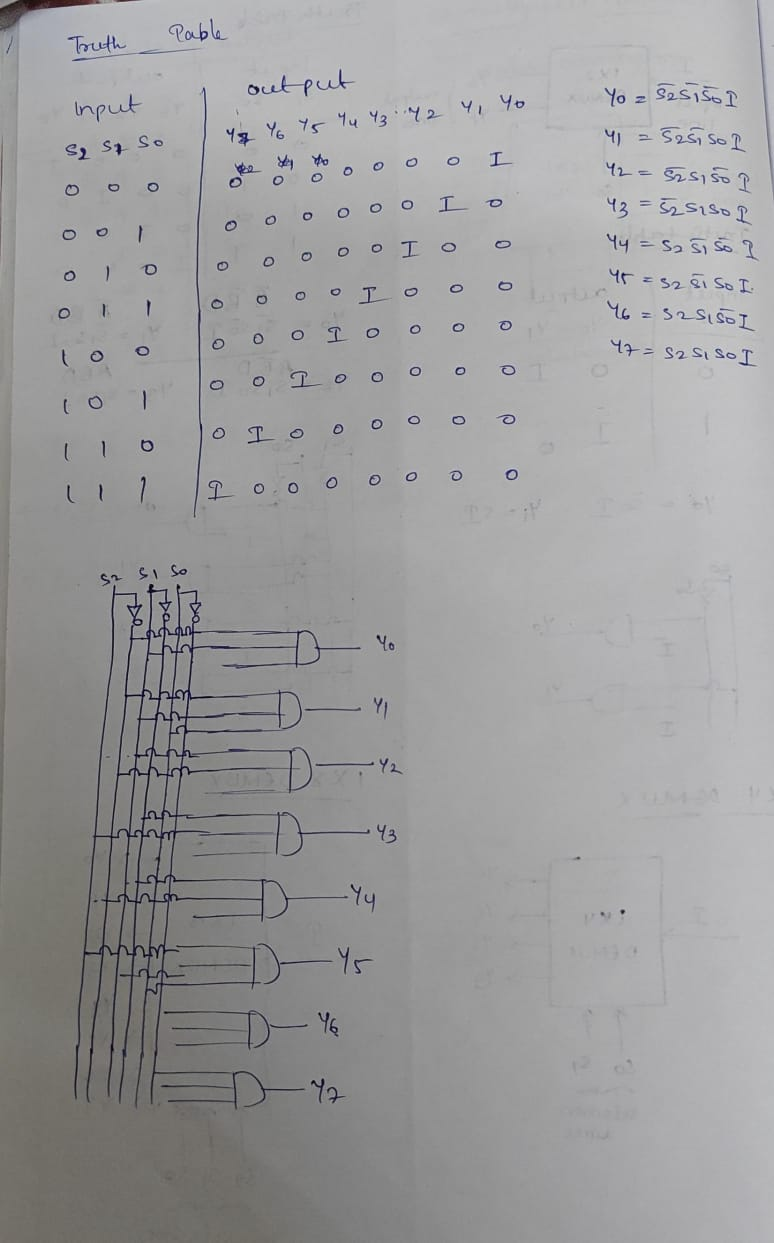 Truth Table
Input | output
S2 S1 S0 | Y7 Y6 Y5 Y4 Y3 Y2 Y1 Y0
0 0 0 | 0 0 0 0 0 0 0 I
0 0 1 | 0 0 0 0 0 0 I 0
0 1 0 | 0 0 0 0 0 I 0 0
0 1 1 | 0 0 0 0 I 0 0 0
1 0 0 | 0 0 0 I 0 0 0 0
1 0 1 | 0 0 I 0 0 0 0 0
1 1 0 | 0 I 0 0 0 0 0 0
1 1 1 | I 0 0 0 0 0 0 0
Y0 = S̅2 S̅1 S̅0 I
Y1 = S̅2 S̅1 S0 I
Y2 = S̅2 S1 S̅0 I
Y3 = S̅2 S1 S0 I
Y4 = S2 S̅1 S̅0 I
Y5 = S2 S̅1 S0 I
Y6 = S2 S1 S̅0 I
Y7 = S2 S1 S0 I
S2 S1 S0
Y0
Y1
Y2
Y3
Y4
Y5
Y6
Y7